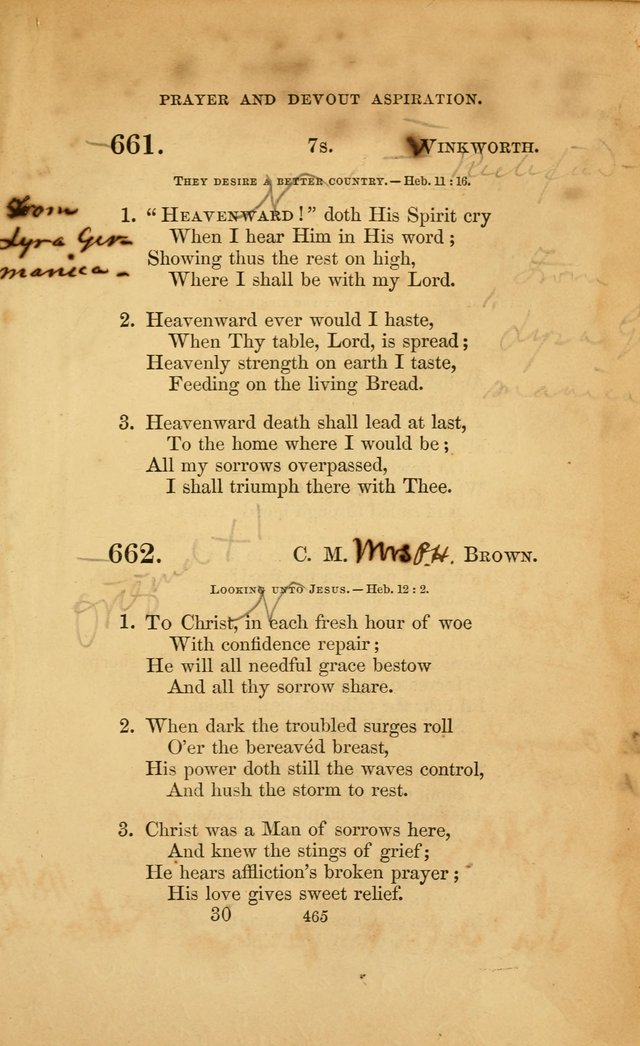 PRAYER AND DEVOUT ASPIRATION.
661. 7s. WINKWORTH.
THEY DESIRE A BETTER COUNTRY.—Heb. 11 : 16.
From
Lyra Ger
manica -
1. “ HEAVENWARD ! ” doth His Spirit cry
When I hear Him in His word ;
Showing thus the rest on high,
Where I shall be with my Lord.
From
Lyra G
manica
2. Heavenward ever would I haste,
When Thy table, Lord, is spread ;
Heavenly strength on earth I taste,
Feeding on the living Bread.
3. Heavenward death shall lead at last,
To the home where I would be ;
All my sorrows overpassed,
I shall triumph there with Thee.
662. C. M. Mrs P. H. BROWN.
LOOKING UNTO JESUS.—Heb. 12 : 2.
1. To Christ, in each fresh hour of woe
With confidence repair ;
He will all needful grace bestow
And all thy sorrow share.
2. When dark the troubled surges roll
O’er the bereavéd breast,
His power doth still the waves control,
And hush the storm to rest.
3. Christ was a Man of sorrows here,
And knew the stings of grief ;
He hears affliction’s broken prayer ;
His love gives sweet relief.
30 465